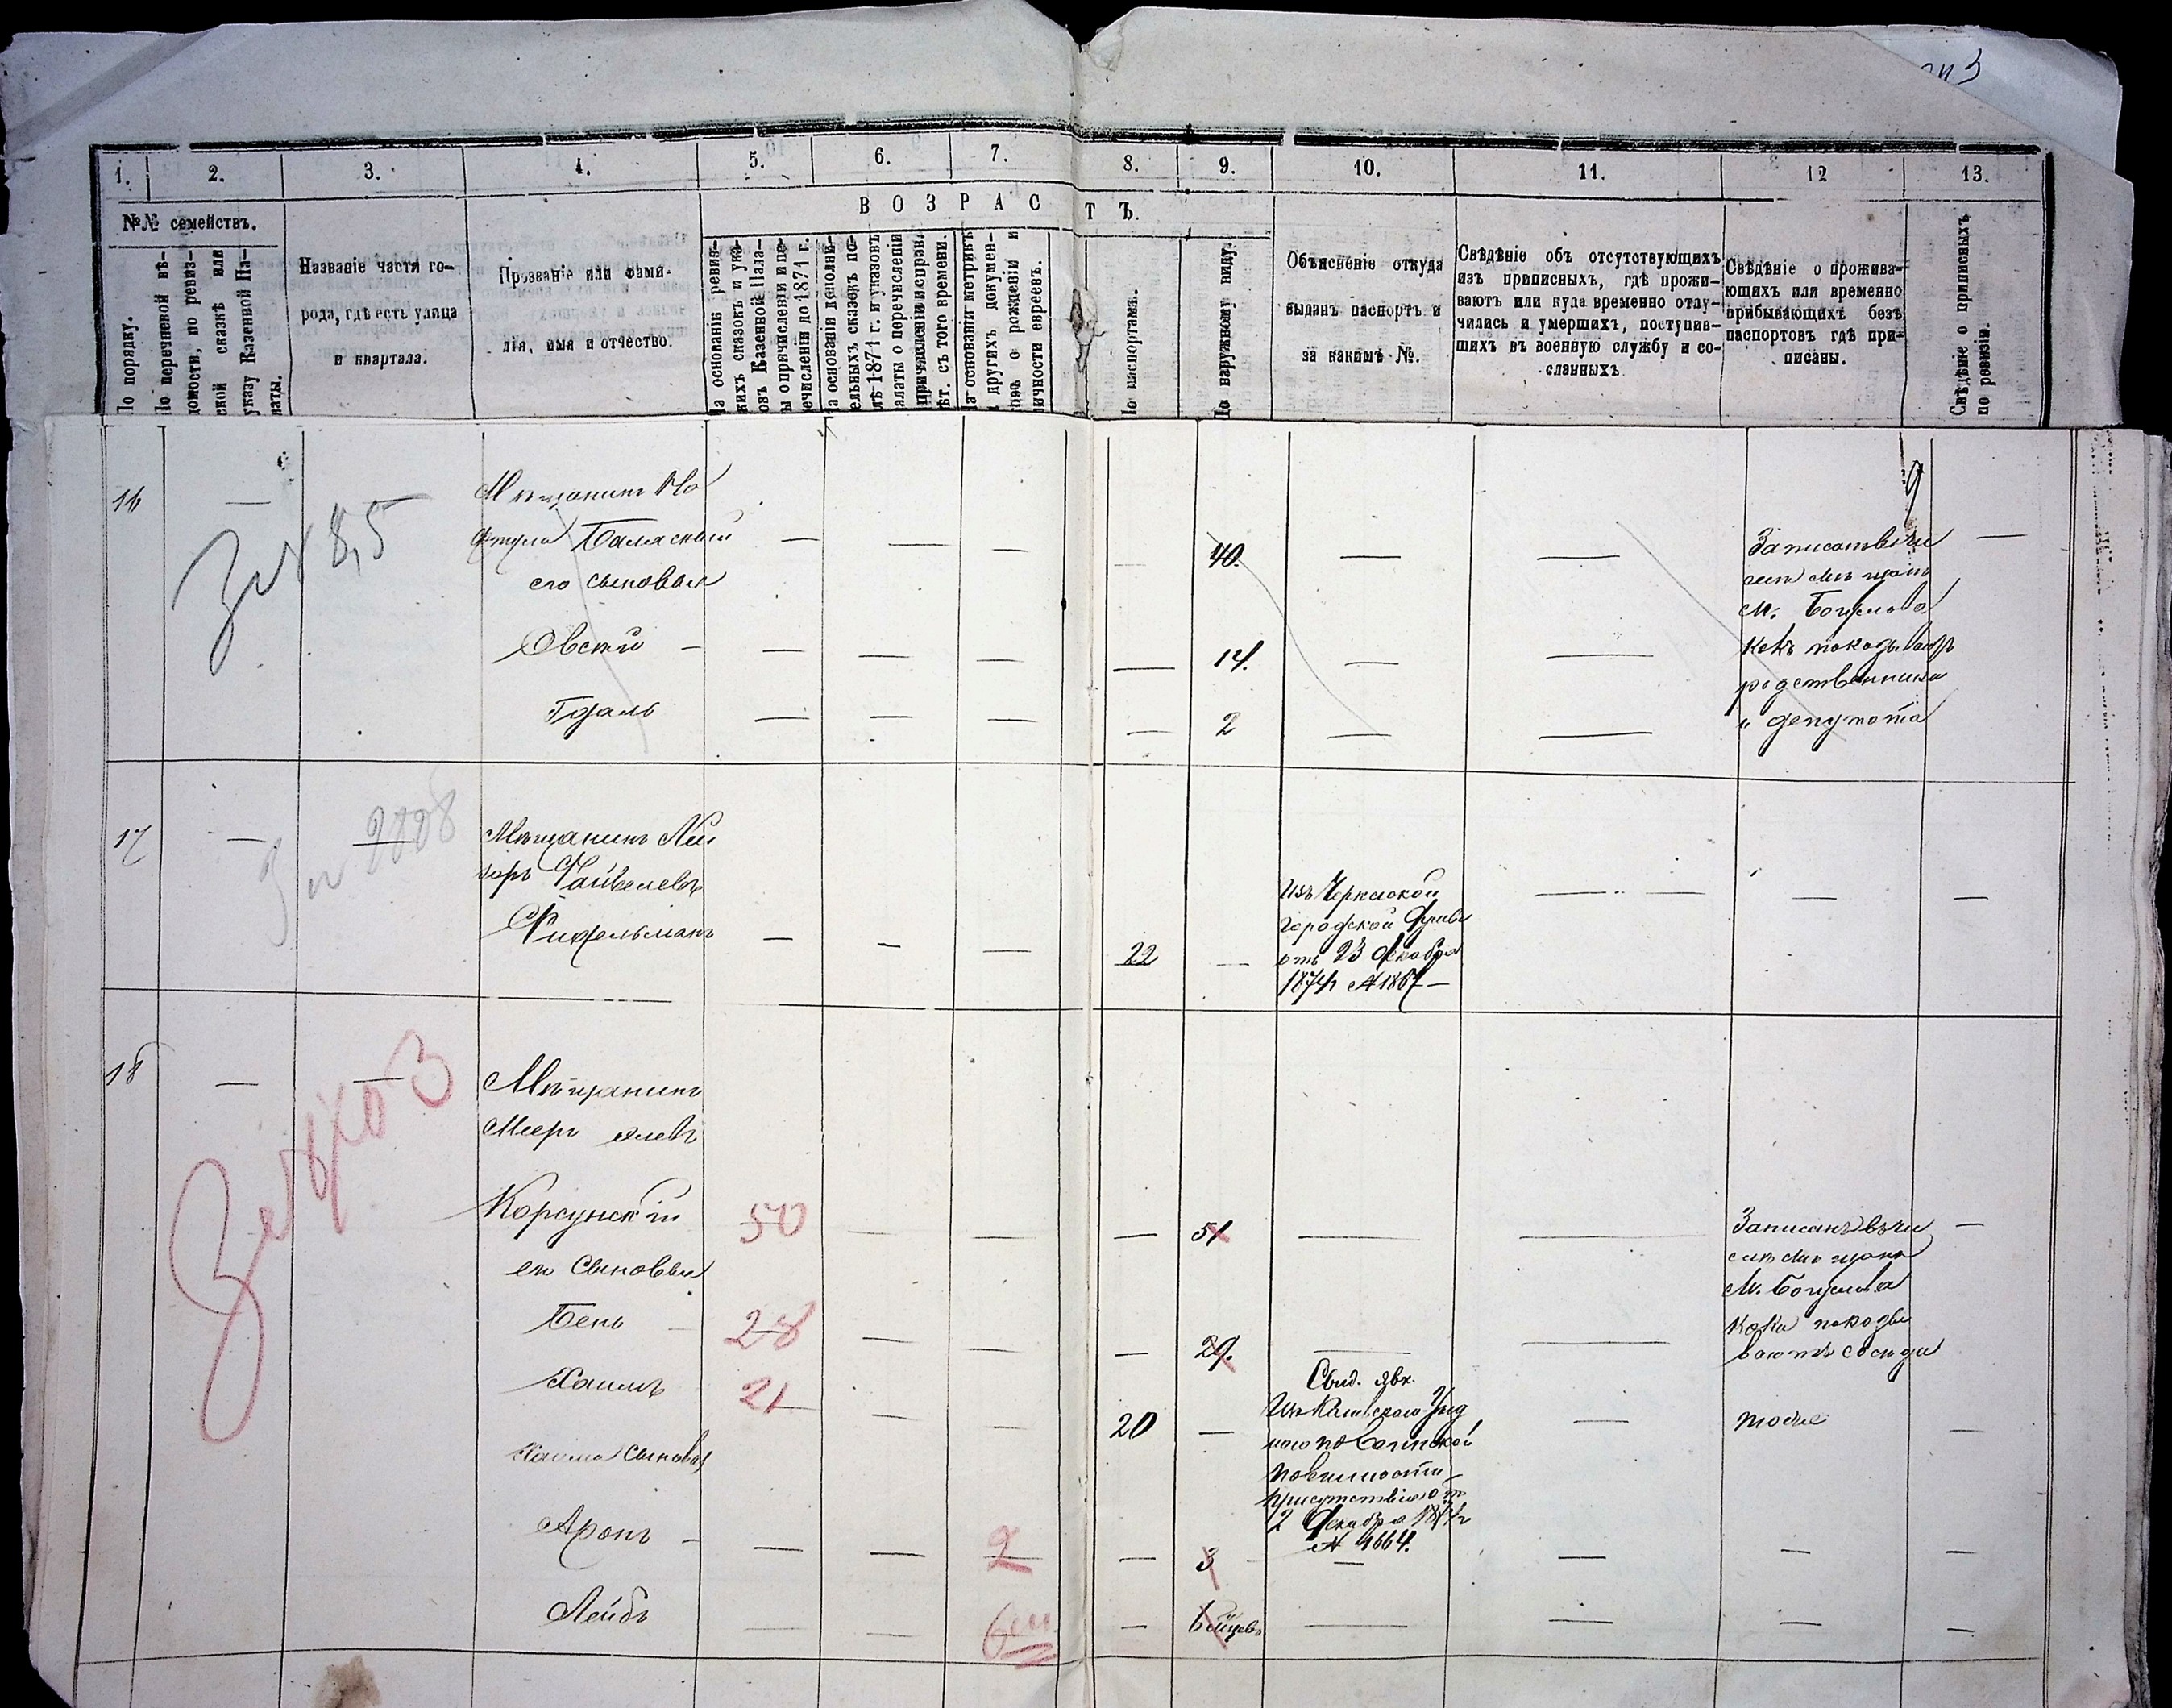 1.
2.
3.
4.
5.
6.
7.
8.
9.
10.
11.
12
13.
В О З Р А С Т Ъ.
№№ семействъ.
По порядку.
По перечневой вѣ-
домости, по ревиз-
ской сказкѣ или
указу Казенной Па-
латы.
Названіе части го-
рода, гдѣ есть улица
и квартала.
Прозваніе или фами-
лія, имя и отчество.
На основаніи ревиз-
скихъ сказокъ и ука-
зовъ Казенной Пала-
ты о причисленіи и пе-
речисленіи до 1871 г.
На основаніи дополни-
тельныхъ сказокъ по-
слѣ 1871 г. и указовъ
Палаты о перечисленіи
причисленіи и исправ.
лѣт. съ того времени.
На основаніи метрикъ
и другихъ докумен-
товъ о рожденіи и
личности евреевъ.
По паспортамъ.
По наружному виду.
Объясненіе откуда
выданъ паспортъ и
за какимъ №.
Свѣдѣніе объ отсутствующихъ
изъ приписныхъ, гдѣ прожи-
ваютъ или куда временно отлу-
чились и умершихъ, поступив-
шихъ въ военную службу и со-
сланныхъ
Свѣдѣніе о прожива-
ющихъ или временно
прибывающихъ безъ
паспортовъ гдѣ при-
писаны.
Свѣдѣніе о приписныхъ
по ревизіи.
16
Мѣщанинъ
Балясный
его сыновья
40.
Овсій
14.
Гдаль
2
Записать въ чи
М. Богуслава
какъ показываютъ
родственники
и депутата
9
17
Мѣщанинъ Лей
зоръ Файвелевъ
Фидельманъ
22
Изъ Черкаской
городской Думы
отъ 23 Декабря
18
Мѣщанинъ
Мееръ
Корсунскій
50
51
его сыновья
Бень
28
29.
Хаимъ
21
20
Хаима сыновья
Аронъ
2
3
Лейбъ
6 м.
6 мѣцевъ
Свид. явк.
по воинской
повинности
присутствія отъ
2 Декабря
№ 4664.
Записанъ въ чи
слѣ мѣщанъ
М. Богуслава
какъ показы
ваютъ сосѣди
тоже